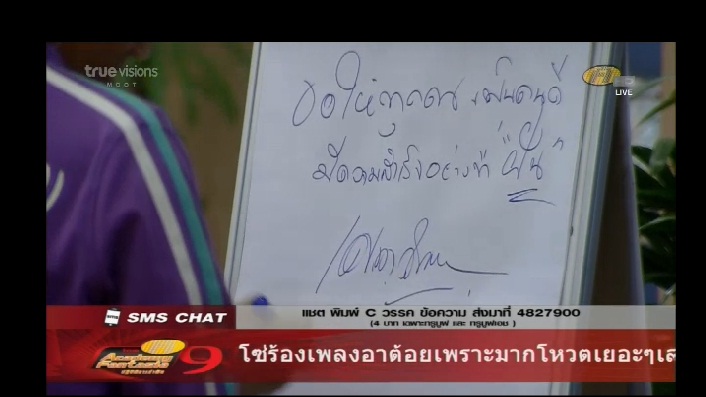 truevisions
MCOT
LIVE
ขอให้ทุกคน เป็นคนดี
มีความสำเร็จอย่างที่ "ฝัน"
SMS CHAT
แชต พิมพ์ C วรรค ข้อความ ส่งมาที่ 4827900
(4 บาท เฉพาะทรูมูฟ และ ทรูมูฟเอช)
Academy
Fantasia
9
โซ่ร้องเพลงอาต้อยเพราะมากโหวตเยอะๆเส